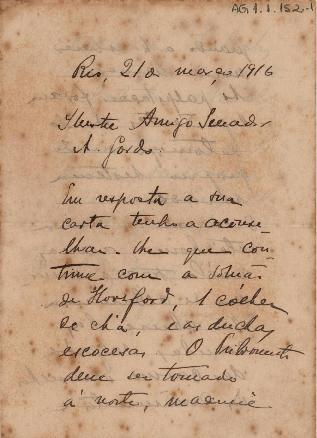 AG 1.1.152-1
Rio, 21 de março 1916
Illustre Amigo Senador
A. Gordo.
Em resposta a sua
carta tenho a aconse-
lhar-lhe que con-
tinue com a
de Horsford, 1 colher
de chá, e as duchas
escocesas. O
deve ser tomado
á noite,